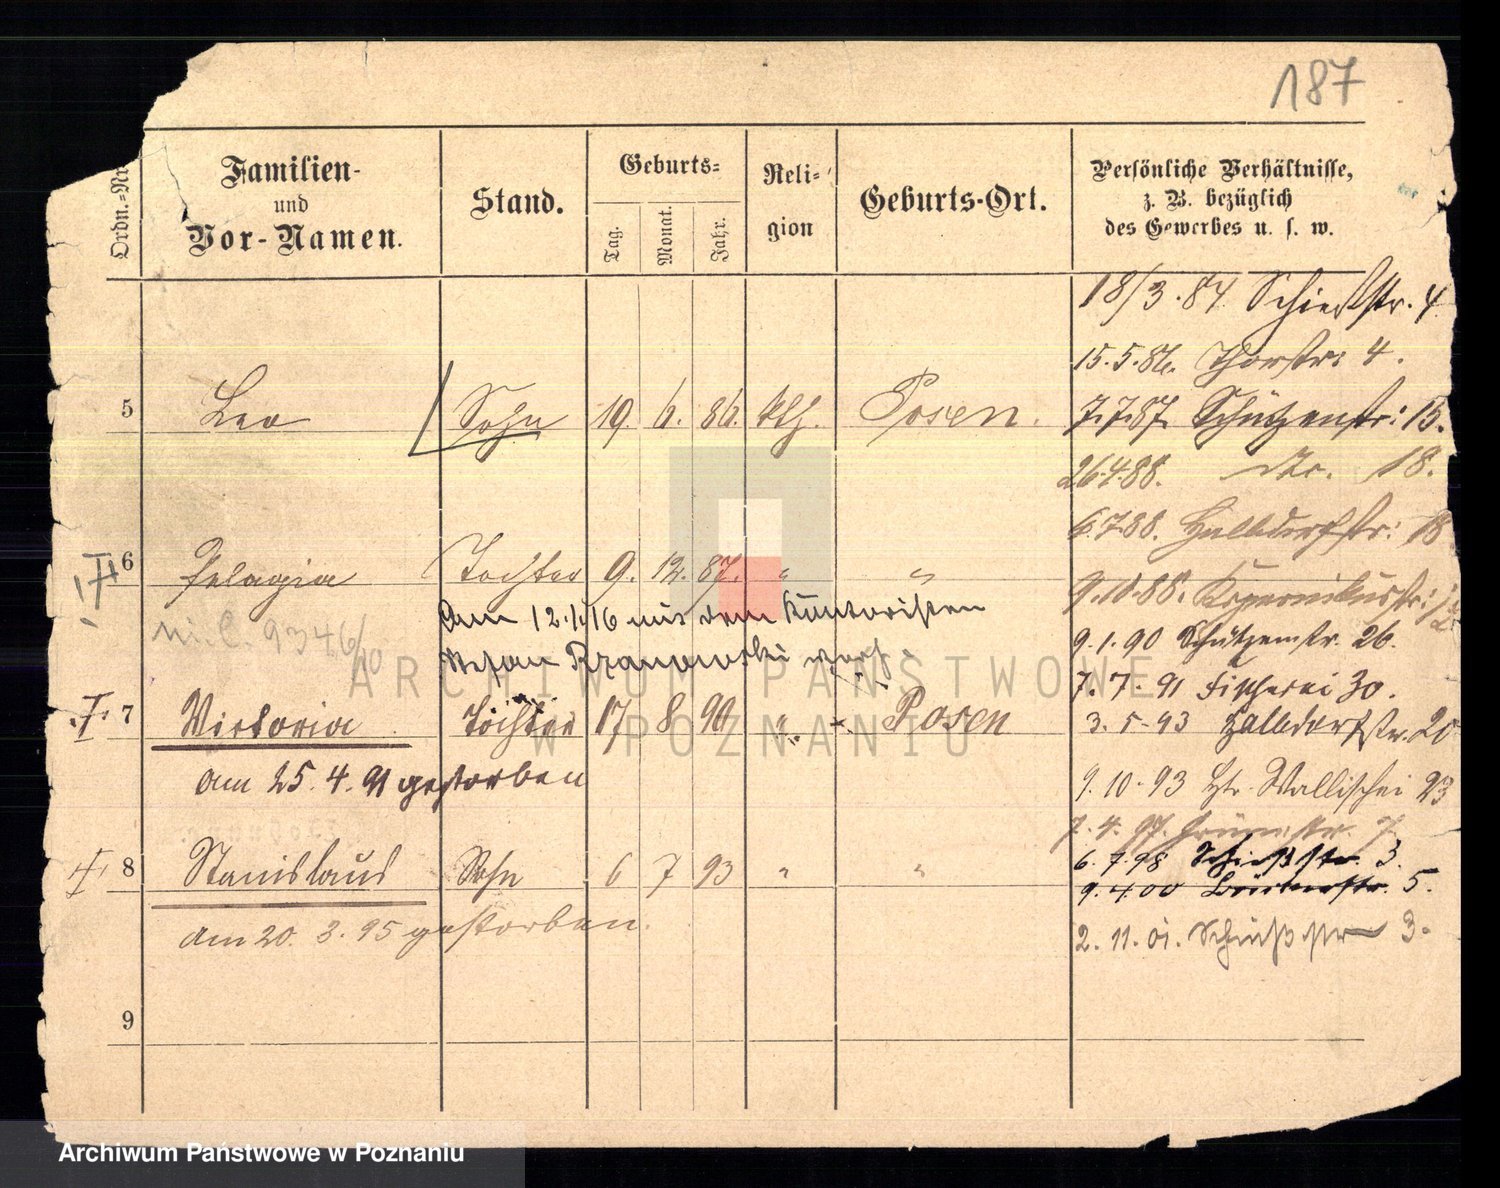 187
Ordn.=Nr
Familien-
und
Vor-Namen.
Stand.
Geburts=
Tag.
Monat.
Jahr.
Reli-
gion
Geburts-Ort.
Persönliche Verhältnisse,
z. B. bezüglich
des Gewerbes u. s. w.
5 Leo Sohn 19. 6. 86. kth. Posen.
6 Pelagia Tochter 9. 12. 87. " "
Am 12.1.16 mit dem Kontoristen
ni. C. 9346/10
7 Victoria Tochter 17 8 90 " Posen
am 25. 4. 91 gestorben
8 Stanislaus Sohn 6 7 93 " "
am 20. 3. 95 gestorben.
9
18/3.87. Schießstr. 4
15.5.86. Thorstr. 4.
7.7.87. Schützenstr: 15.
26.4.88. 18.
6.7.88. Halbdorfstr: 18
9.10.88. Kopernikusstr:
9.1.90 Schützenstr. 26.
7.7.91 Fischerei 30.
3.5.93 Halbdorfstr. 20
9.10.93 Wallischei 23
7.4.97. 7
6.7.98 Schießstr. 3.
9.4.00 5.
2.11.01. Schießstr 3.
ARCHIWUM PAŃSTWOWE
W POZNANIU
Archiwum Państwowe w Poznaniu